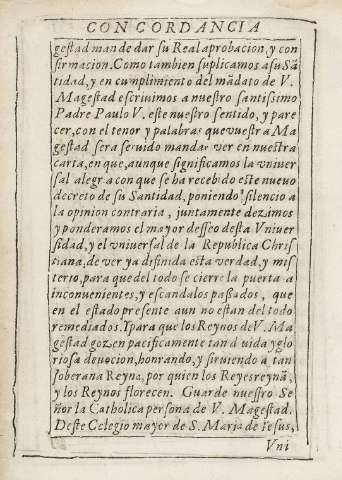 CONCORDANCIA
gestad mande dar su Real aprobacion, y con
firmacion. Como tambien suplicamos a su Sã
tidad, y en cumplimiento del mãdato de V.
Magestad escriuimos a nuestro santissimo
Padre Paulo V. este nuestro sentido, y pare
cer, con el tenor y palabras que vuestra Ma
gestad sera seruido mandar ver en nuestra
carta, en que, aunque significamos la vniuer
sal alegria con que se ha recebido este nueuo
decreto de su Santidad, poniendo silencio a
la opinion contraria, juntamente dezimos
y ponderamos el mayor desseo desta Vniuer
sidad, y el vniuersal de la Republica Chris
tiana, de ver ya difinida esta verdad, y mis
terio, para que del todo se cierre la puerta a
inconuenientes, y escandalos passados, que
en el estado presente aun no estan del todo
remediados. Y para que los Reynos de V. Ma
gestad gozen pacificamente tan d vida y glo
riosa deuocion, honrando, y siruiendo a tan
soberana Reyna, por quien los Reyes reynã,
y los Reynos florecen. Guarde nuestro Se
ñor la Catholica persona de V. Magestad.
Deste Colegio mayor de S. Maria de Iesus,
Vni